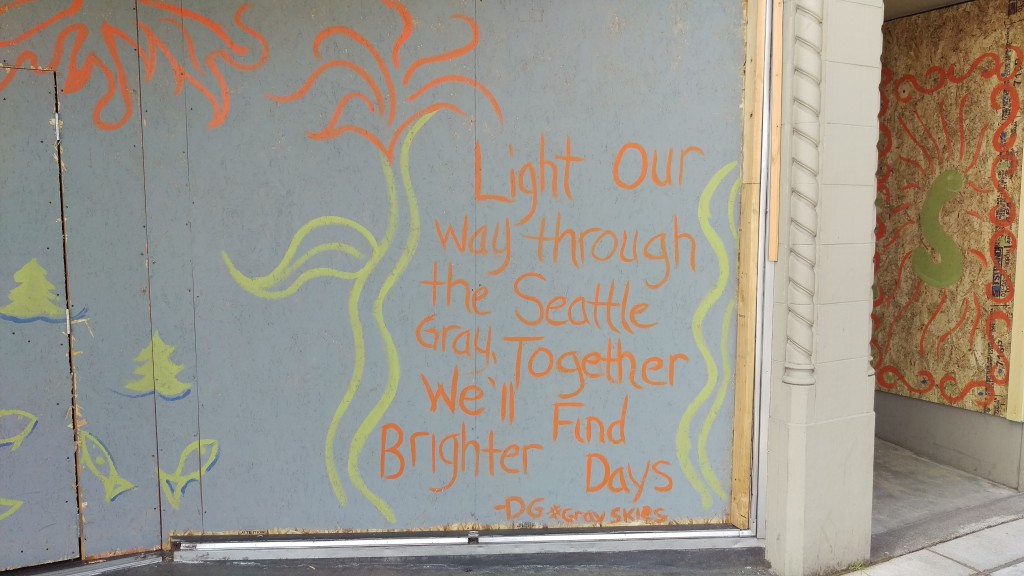 Light Our
way through
the Seattle
Gray, Together
We'll Find
Brighter Days
-DG *Gray Skies